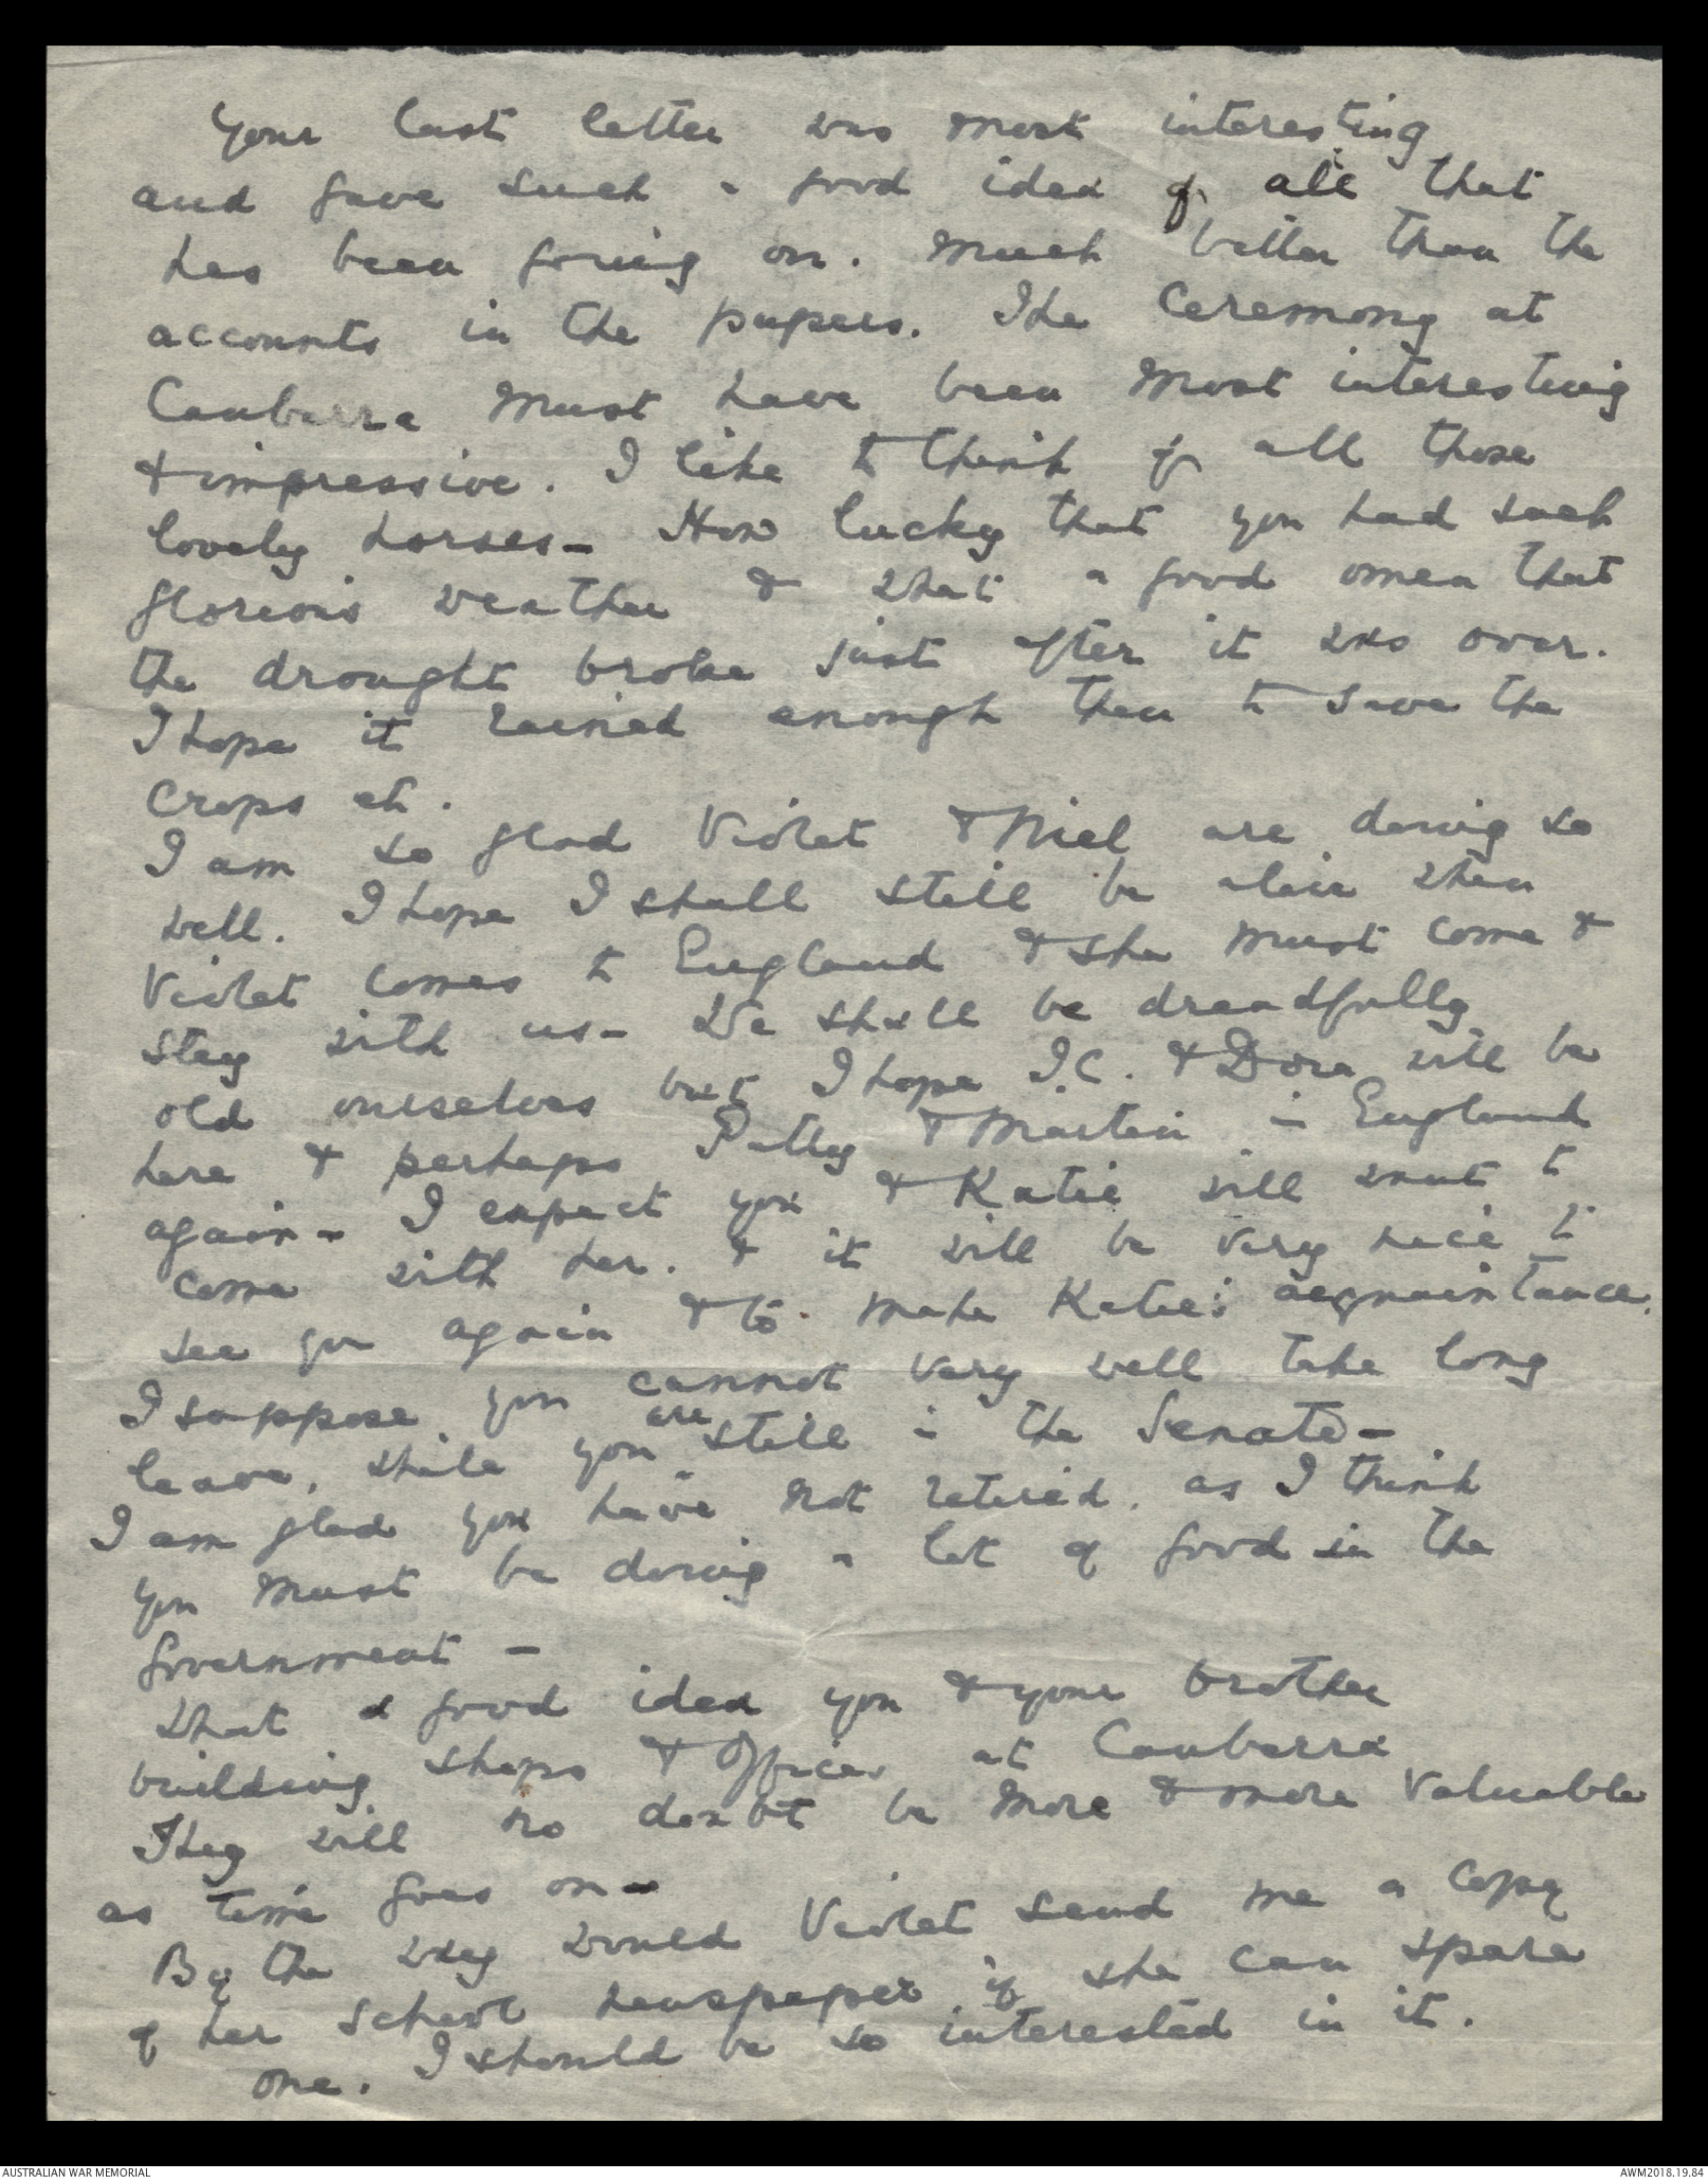 Your last letter was most interesting
and gave such a good idea of all that
has been going on. Much better than the
accounts in the papers. The Ceremony at
Canberra must have been most interesting
& impressive. I like to think of all those
lovely horses - How lucky that you had such
glorious weather & what a good omen that
the drought broke just after it was over.
I hope it rained enough then to save the
crops etc.
I am so glad Violet & Niel are doing so
well. I hope I shall still be alive when
Violet comes to England & she must come &
stay with us - We shall be dreadfully
old ourselves but I hope I.C. & Dora will be
here & perhaps Patty & Martin in England
again - I expect you & Katie will want to
come with her. & it will be very nice to
see you again & to make Katie's acquaintance.
I suppose you cannot very well take long
leave, while you are still in the Senate -
I am glad you have not retired, as I think
you must be doing a lot of good in the
Government -
What a good idea you & your brother
building shops & Offices at Canberra
They will no doubt be more & more valuable
as time goes on -
By the way would Violet send me a copy
of her school newspaper if she can spare
one. I should be so interested in it.
AUSTRALIAN WAR MEMORIAL
AWM2018.19.84